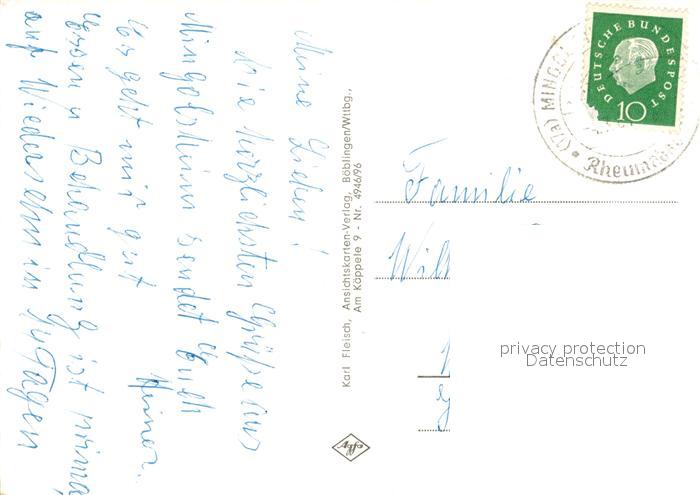 Meine Lieben!
Die herzlichsten Grüße aus
Mingolsheim sendet Euch
Heiner.
Es geht mir gut
Essen u Behandlung ist prima,
auf Wiedersehn in Tagen
Karl Fleisch, Ansichtskarten-Verlag, Böblingen/Wttbg.,
Am Käppele 9 - Nr. 4946/96
Agfa
DEUTSCHE BUNDESPOST
10
(17a) MINGOL
Familie
Wil
privacy protection
Datenschutz